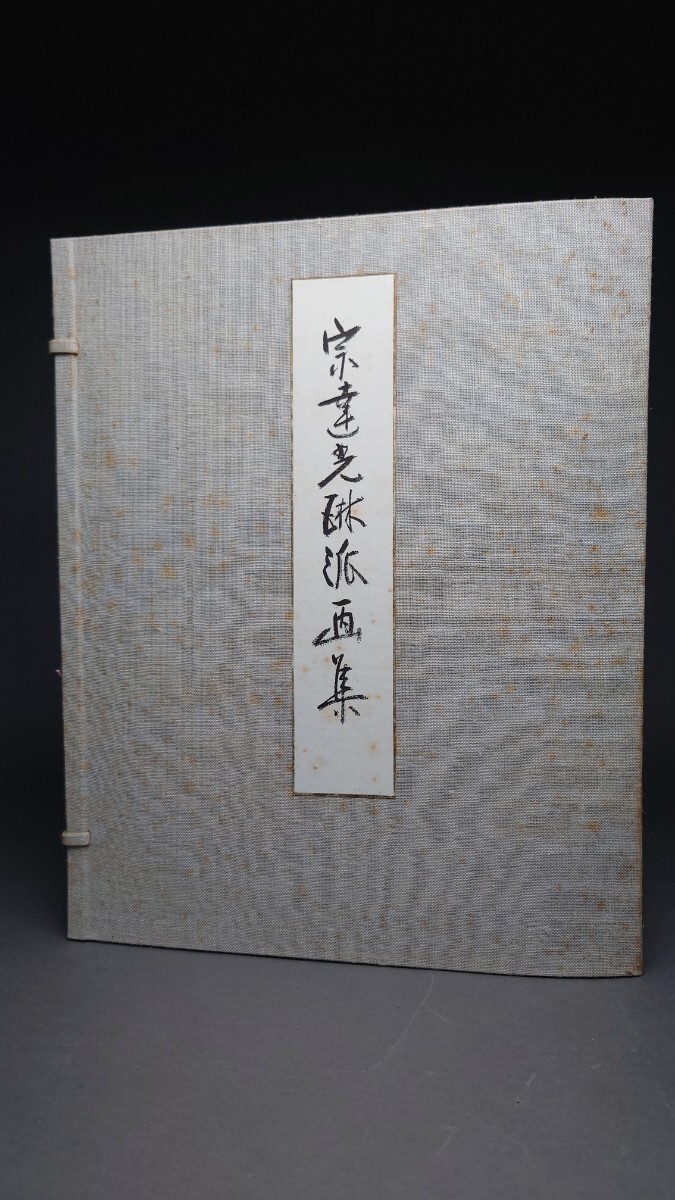 宗達光琳派画集